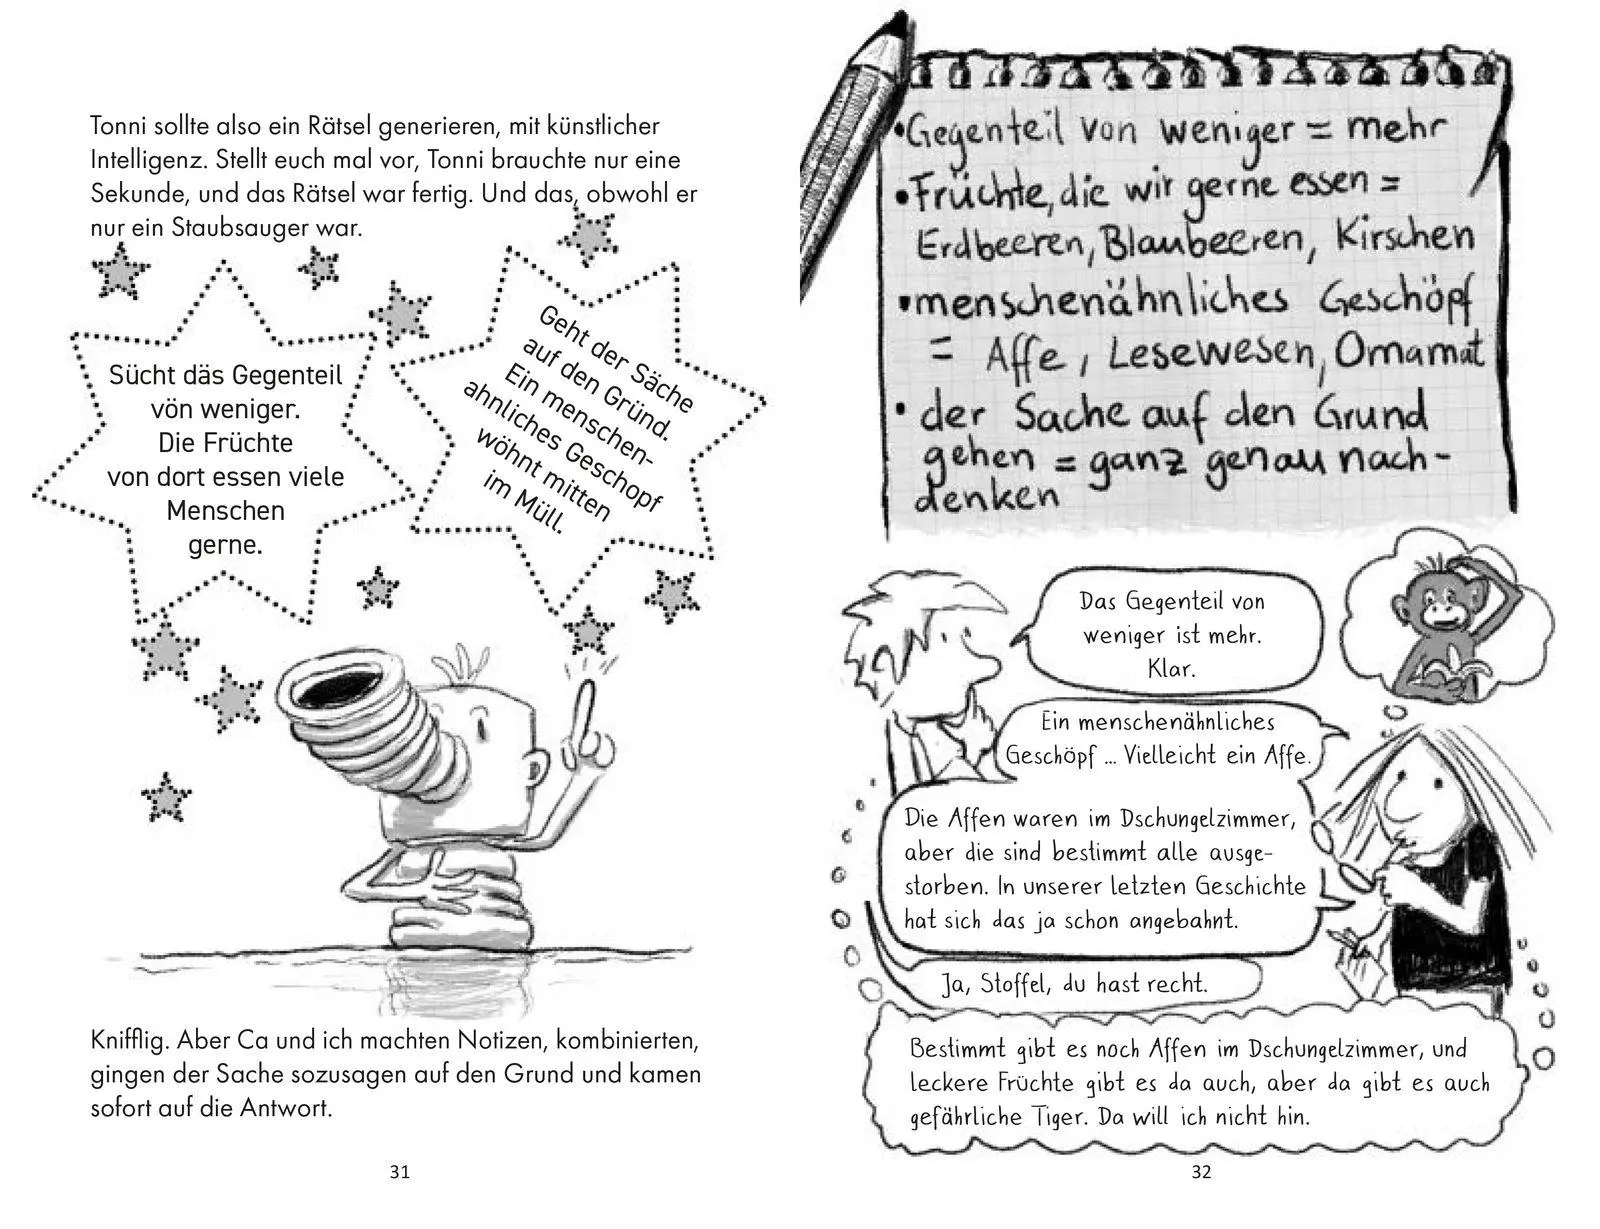 Tonni sollte also ein Rätsel generieren, mit künstlicher
Intelligenz. Stellt euch mal vor, Tonni brauchte nur eine
Sekunde, und das Rätsel war fertig. Und das, obwohl er
nur ein Staubsauger war.
Sücht däs Gegenteil
vön weniger.
Die Früchte
von dort essen viele
Menschen
gerne.
Geht der Säche
auf den Gründ.
Ein menschen-
ahnliches Geschopf
wöhnt mitten
im Müll.
Knifflig. Aber Ca und ich machten Notizen, kombinierten,
gingen der Sache sozusagen auf den Grund und kamen
sofort auf die Antwort.
31
•Gegenteil von weniger = mehr
•Früchte, die wir gerne essen =
Erdbeeren, Blaubeeren, Kirschen
•menschenähnliches Geschöpf
= Affe, Lesewesen, Omamat
• der Sache auf den Grund
gehen = ganz genau nach-
denken
Das Gegenteil von
weniger ist mehr.
Klar.
Ein menschenähnliches
Geschöpf ... Vielleicht ein Affe.
Die Affen waren im Dschungelzimmer,
aber die sind bestimmt alle ausge-
storben. In unserer letzten Geschichte
hat sich das ja schon angebahnt.
Ja, Stoffel, du hast recht.
Bestimmt gibt es noch Affen im Dschungelzimmer, und
leckere Früchte gibt es da auch, aber da gibt es auch
gefährliche Tiger. Da will ich nicht hin.
32